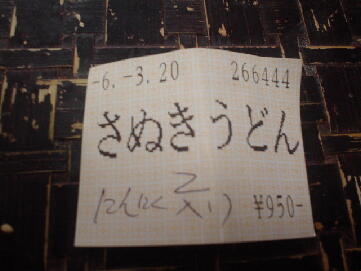 -6.-3.20 266444
さぬきうどん
にんにく ¥950-